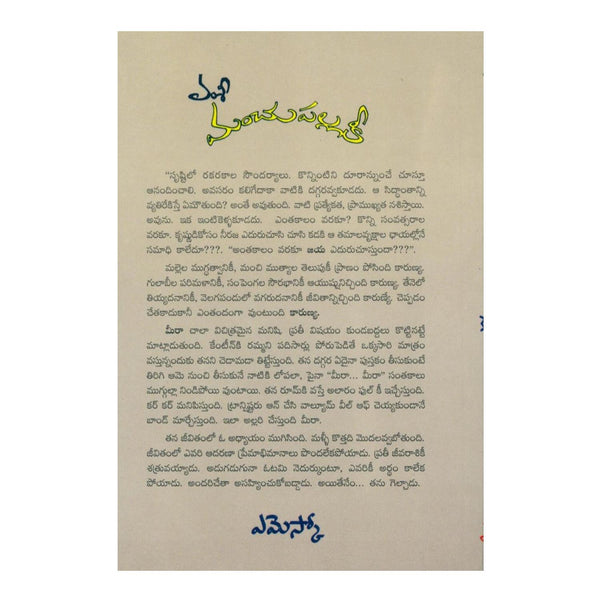 వంశీ
మంచుపల్లకీ
"సృష్టిలో రకరకాల సౌందర్యాలు. కొన్నింటిని దూరాన్నుంచే చూస్తూ
ఆనందించాలి. అవసరం కలిగేదాకా వాటికి దగ్గరవ్వకూడదు. ఆ సిద్ధాంతాన్ని
వ్యతిరేకిస్తే ఏమౌతుంది? అంతే అవుతుంది. వాటి ప్రత్యేకత, ప్రాముఖ్యత నశిస్తాయి.
అవును. ఇక ఇంటికెళ్ళకూడదు. ఎంతకాలం వరకూ? కొన్ని సంవత్సరాల
వరకూ. కృష్ణుడికోసం నీరజ ఎదురుచూసి చూసి కడకి ఆ తమాలవృక్షాల ఛాయల్లోనే
సమాధి కాలేదూ???. "అంతకాలం వరకూ జయ ఎదురుచూస్తుందా???".
మల్లెల ముగ్ధత్వానికీ, మంచి ముత్యాల తెలుపుకీ ప్రాణం పోసింది కారుణ్య.
గులాబీల పరిమళానికీ, సంపెంగల సౌరభానికీ ఆయుష్షునిచ్చింది కారుణ్య. తేనెలో
తియ్యదనానికీ, వెలగపండులో వగరుదనానికీ జీవితాన్నిచ్చింది కారుణ్యే. చెప్పడం
చేతకాదుకానీ ఎంతందంగా వుంటుంది కారుణ్య.
మీరా చాలా విచిత్రమైన మనిషి. ప్రతీ విషయం కుండబద్దలు కొట్టినట్టే
మాట్లాడుతుంది. కేంటీన్‌కి రమ్మని పదిసార్లు పోరుపెడితే ఒక్కసారి మాత్రం
వస్తున్నందుకు తనని చెడామడా తిట్టేస్తుంది. తన దగ్గర ఏదైనా పుస్తకం తీసుకుంటే
తిరిగి ఆమె నుంచి తీసుకునే నాటికి లోపలా, పైనా "మీరా... మీరా" సంతకాలు
ముగ్గుల్లా నిండిపోయి వుంటాయి. తన రూమ్‌కి వస్తే అలారం ఫుల్ కీ ఇచ్చేస్తుంది.
కర్ కర్ మనిపిస్తుంది. ట్రాన్సిష్టరు ఆన్ చేసి వాల్యూమ్ వీల్ ఆఫ్ చెయ్యకుండానే
బాండ్ మార్చేస్తుంది. ఇలా అల్లరి చేస్తుంది మీరా.
తన జీవితంలో ఓ అధ్యాయం ముగిసింది. మళ్ళీ కొత్తది మొదలవ్వబోతుంది.
జీవితంలో ఎవరి ఆదరణా ప్రేమాభిమానాలు పొందలేకపోయాడు. ప్రతీ జీవరాశికీ
శత్రువయ్యాడు. అడుగడుగునా ఓటమి నెదుర్కుంటూ, ఎవరికీ అర్థం కాలేక
పోయాడు. అందరిచేతా అసహ్యించుకోబడ్డాడు. అయితేనేం... తను గెల్చాడు.
ఎమెస్కో